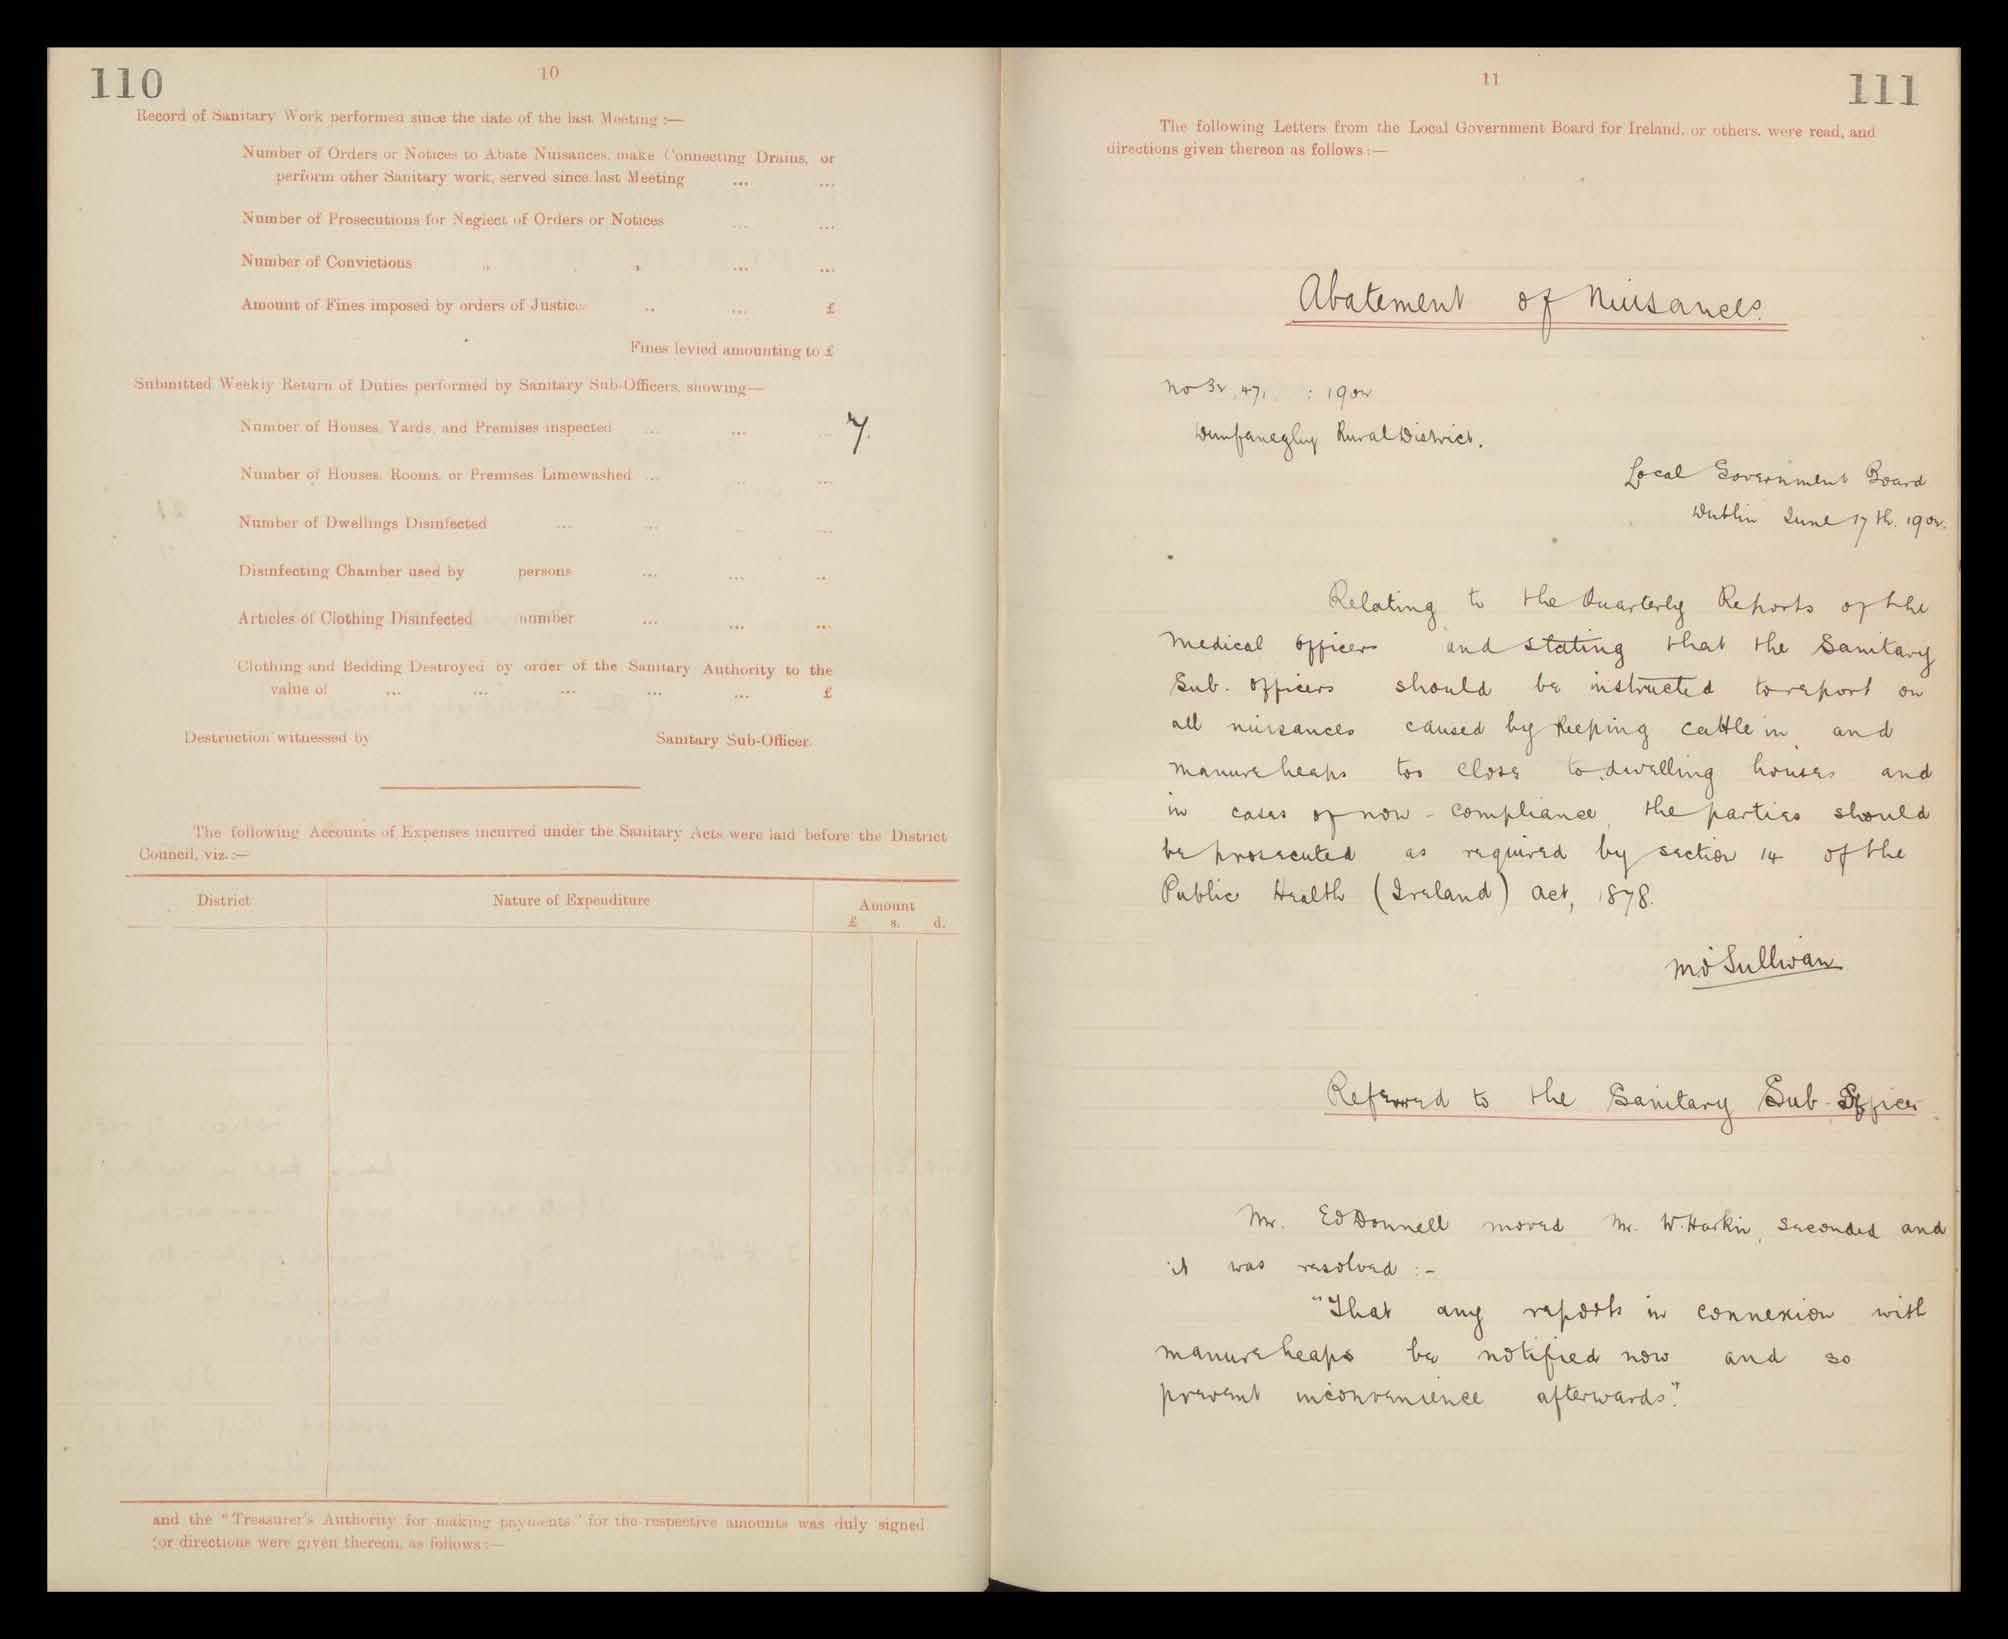 110
10
Record of Sanitary Work performed since the date of the last Meeting :—
Number of Orders or Notices to Abate Nuisances, make Connecting Drains, or
perform other Sanitary work, served since last Meeting ... ...
Number of Prosecutions for Neglect of Orders or Notices ... ...
Number of Convictions " " ... ...
Amount of Fines imposed by orders of Justices ... ... £
Fines levied amounting to £
Submitted Weekly Return of Duties performed by Sanitary Sub-Officers, showing—
Number of Houses, Yards, and Premises inspected ... ... ... 7.
Number of Houses, Rooms, or Premises Limewashed ... ... ...
Number of Dwellings Disinfected ... ... ... ...
Disinfecting Chamber used by persons ... ... ...
Articles of Clothing Disinfected number ... ... ...
Clothing and Bedding Destroyed by order of the Sanitary Authority to the
value of ... ... ... ... ... £
Destruction witnessed by Sanitary Sub-Officer.
The following Accounts of Expenses incurred under the Sanitary Acts were laid before the District
Council, viz. :—
District Nature of Expenditure Amount
£ s. d.
and the "Treasurer's Authority for making payments" for the respective amounts was duly signed
(or directions were given thereon, as follows :—
11
111
The following Letters from the Local Government Board for Ireland, or others, were read, and
directions given thereon as follows :—
Abatement of Nuisances.
No 32,471 : 1902
Dunfanaghy Rural District.
Local Government Board
Dublin June 17th. 1902.
Relating to the Quarterly Reports of the
Medical Officers and stating that the Sanitary
Sub. Officers should be instructed to report on
all nuisances caused by keeping cattle in and
manure heaps too close to dwelling houses and
in cases of non-compliance, the parties should
be prosecuted as required by section 14 of the
Public Health (Ireland) Act, 1878.
M O'Sullivan
Referred to the Sanitary Sub-Officer
Mr. E O'Donnell moved Mr. W. Harkin, seconded and
it was resolved :-
"That any reports in connexion with
manure heaps be notified now and so
prevent inconvenience afterwards."